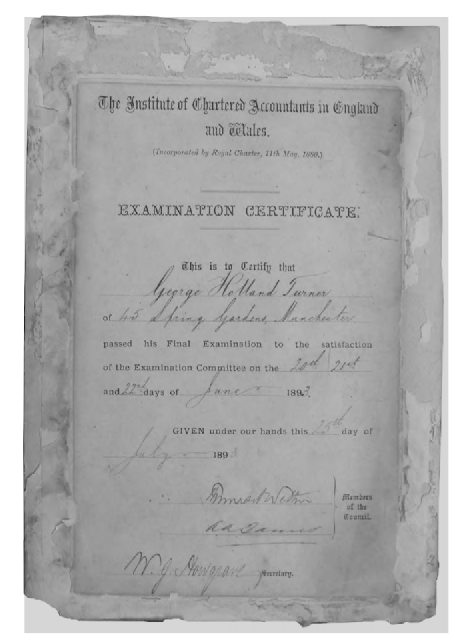 The Institute of Chartered Accountants in England
and Wales.
(Incorporated by Royal Charter, 11th May, 1880.)
EXAMINATION CERTIFICATE.
This is to Certify that
George Holland Turner
of 45 Spring Gardens, Manchester
passed his Final Examination to the satisfaction
of the Examination Committee on the 20th 21st
and 22nd days of June 1893.
GIVEN under our hands this day of
July 1893
Members
of the
Council.
W. G. Howgrave Secretary.